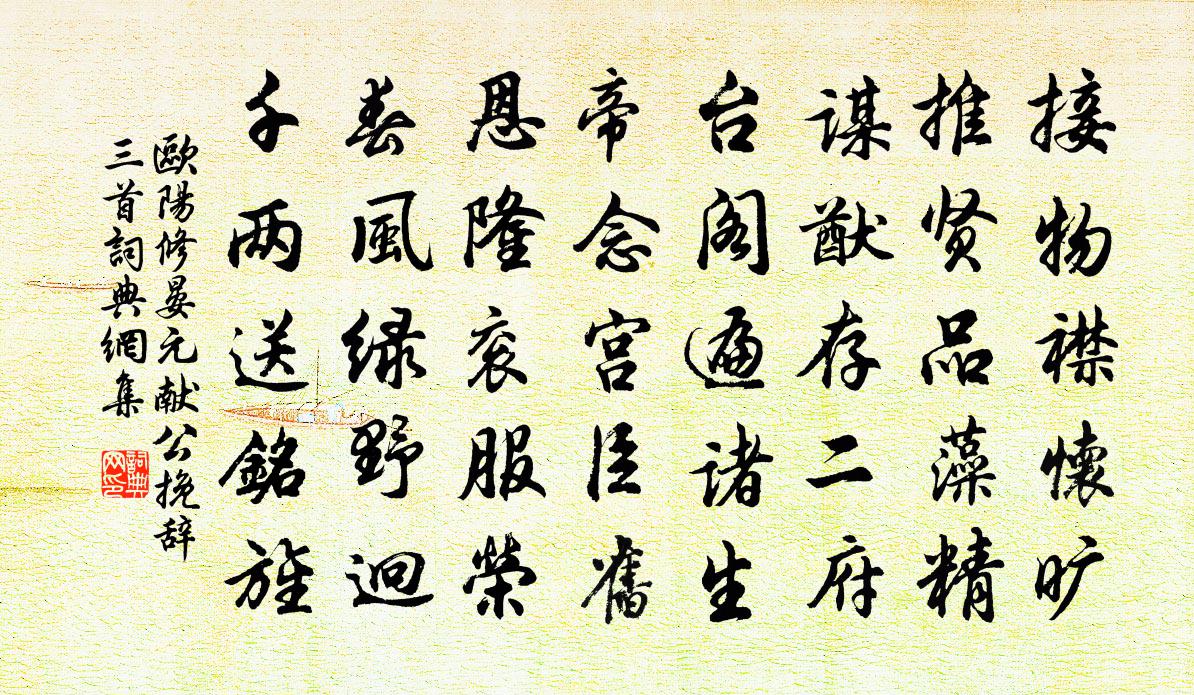 接物襟懷旷
推贤品藻精
谋猷存二府
台阁遍诸生
帝念宫臣舊
恩隆衮服榮
春風绿野迥
千两送銘旌
歐陽修晏元献公挽辞
三首詞典網集
詞典网印